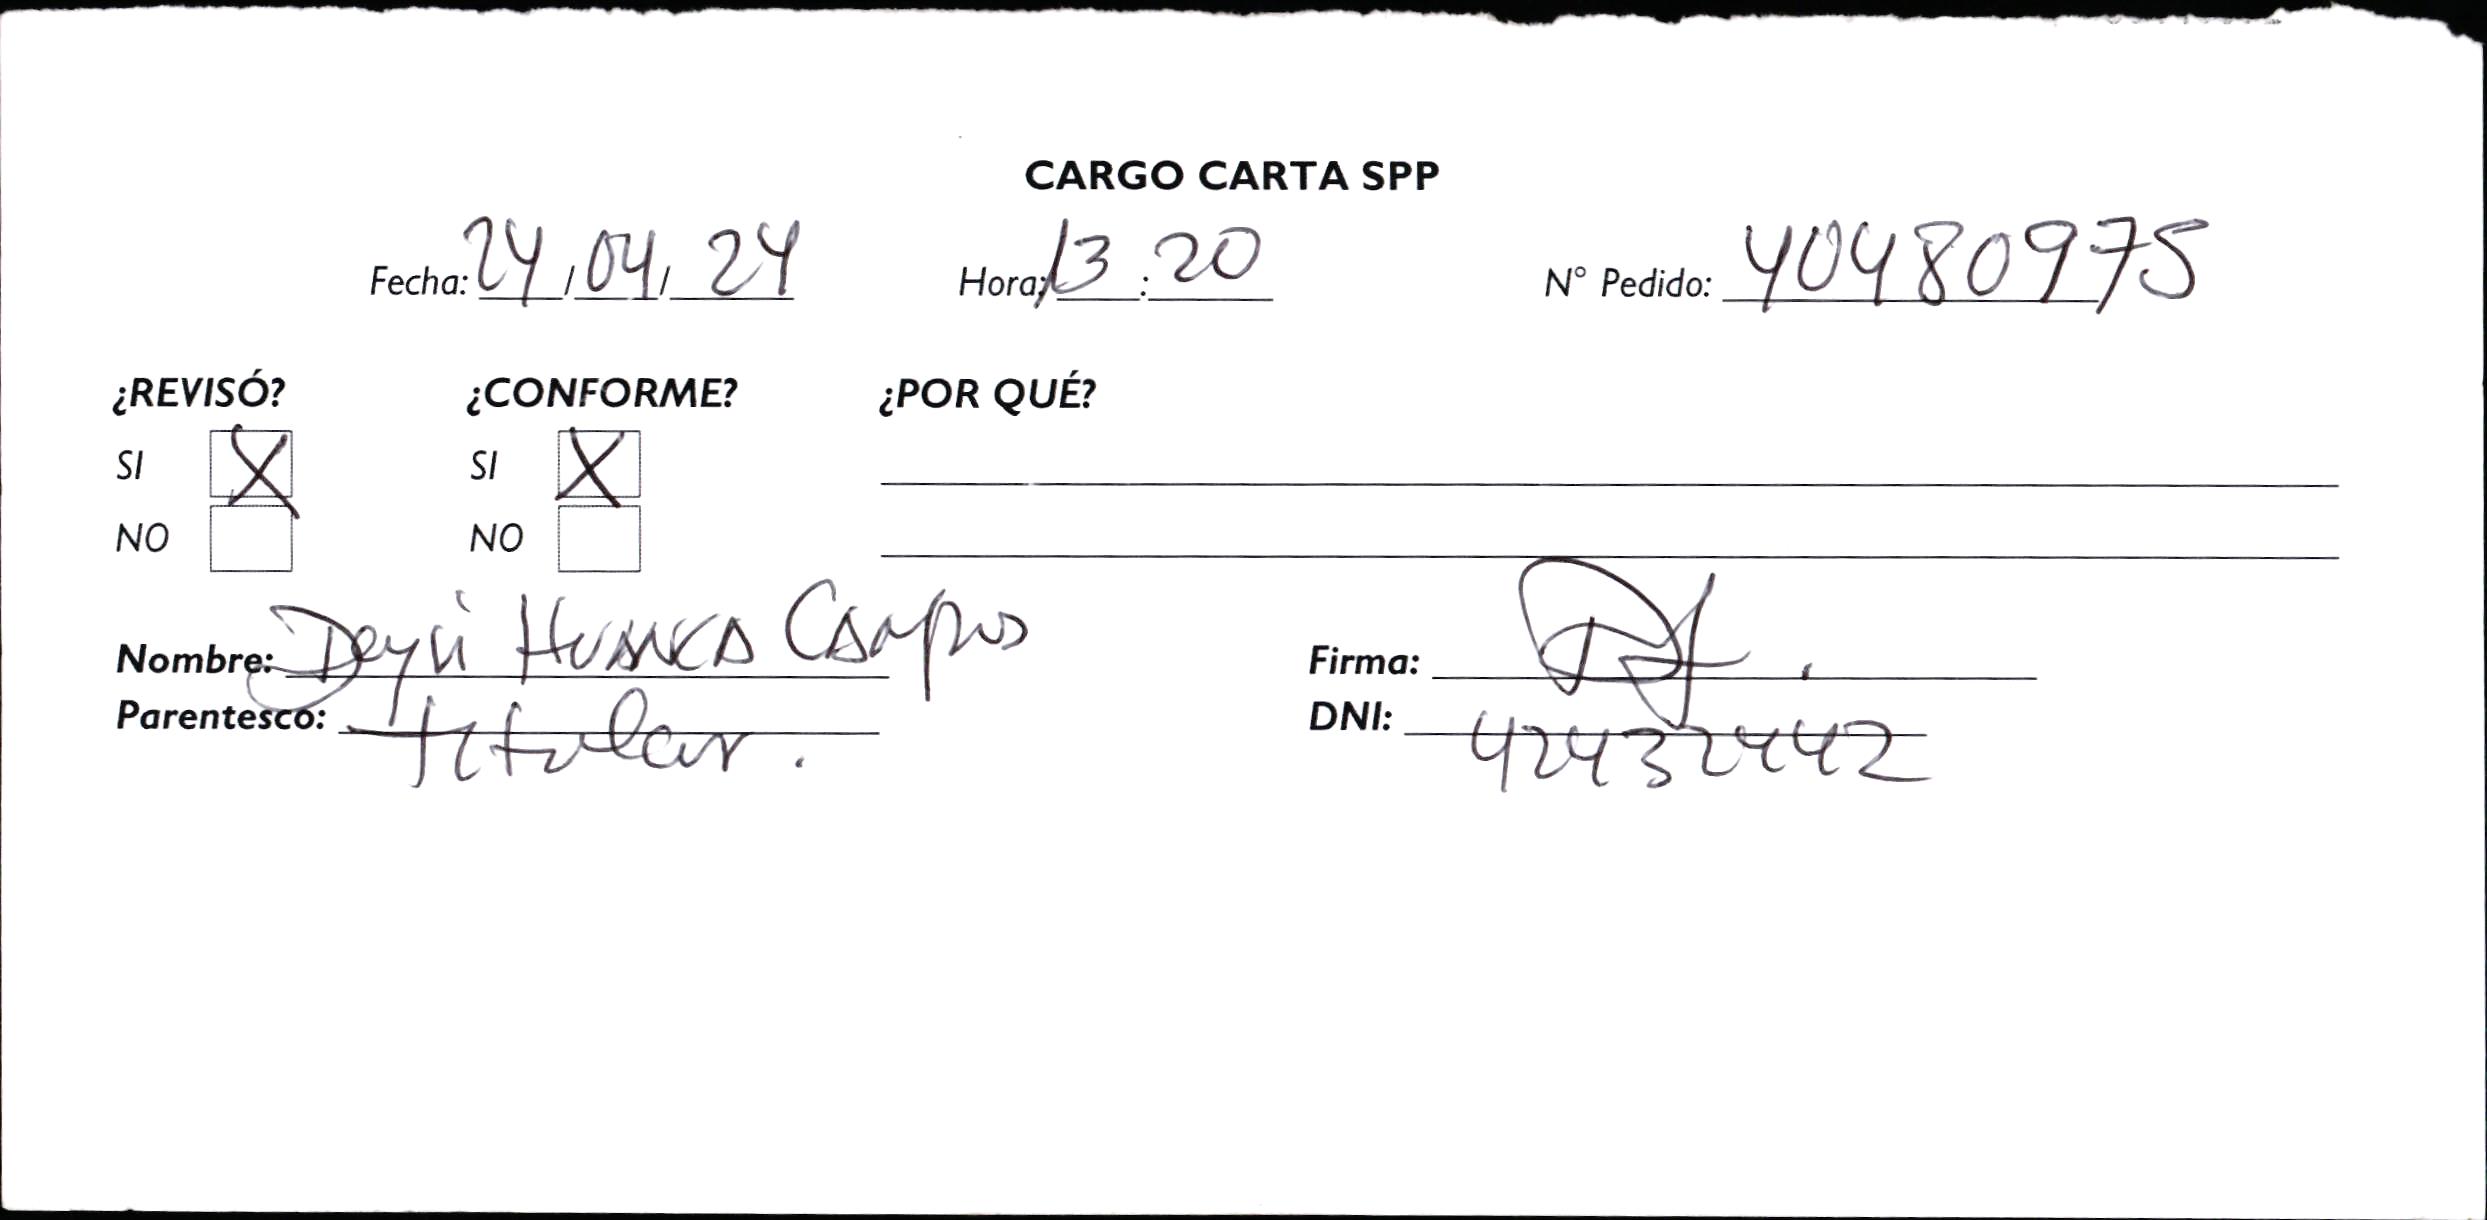 CARGO CARTA SPP
Fecha: 24/04/24 Hora: 13:20 N° Pedido: 40480975
¿REVISÓ? ¿CONFORME? ¿POR QUÉ?
SI X SI X
NO NO
Nombre: Deysi Huanca Campos Firma:
Parentesco: titular. DNI: 42432442